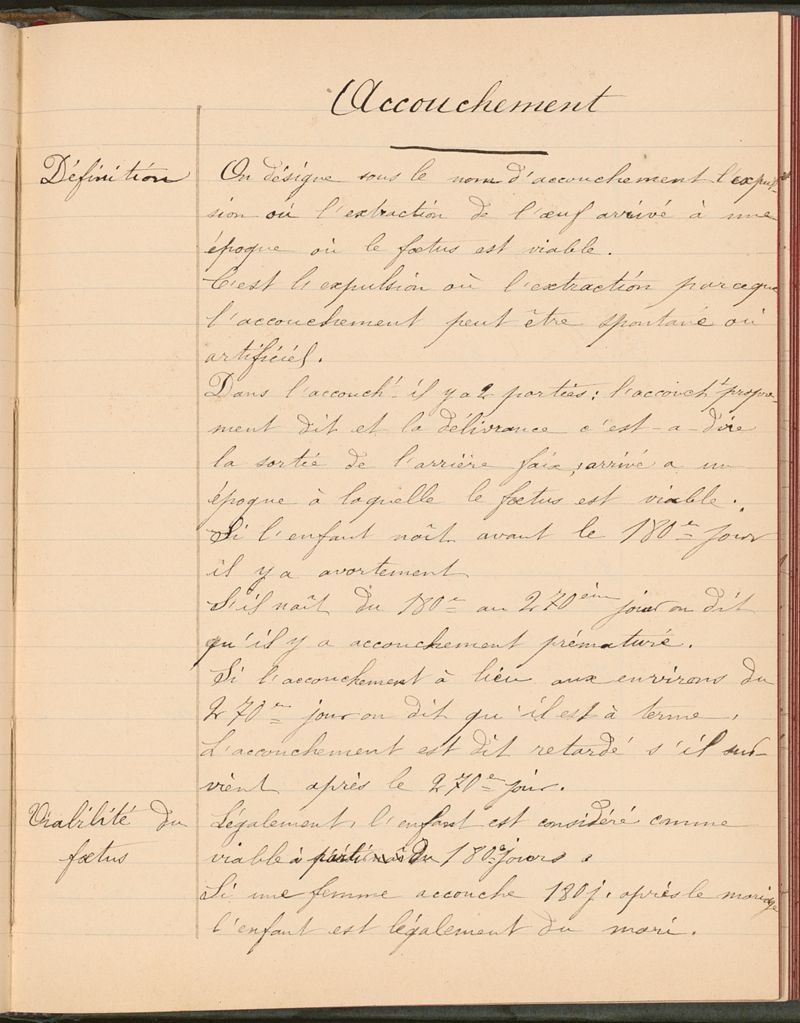 Accouchement
Définition
On désigne sous le nom d'accouchement l'expul-
sion où l'extraction de l'œuf arrivé à une
époque où le fœtus est viable.
C'est l'expulsion où l'extraction parceque
l'accouchement peut être spontané où
artificiel.
Dans l'accouch.t il y a 2 parties : l'accouch.t propre-
ment dit et la délivrance c'est-a-dire
la sortie de l'arrière faix, arrivé a un
époque à laquelle le fœtus est viable.
Si l'enfant naît avant le 180e jour
il y a avortement
S'il naît du 180e au 270ème jour on dit
qu'il y a accouchement prématuré.
Si l'accouchement à lieu aux environs du
270em jour on dit qu'il est à terme.
L'accouchement est dit retardé s'il sur-
vient après le 270em jour.
Viabilité du
fœtus
Légalement, l'enfant est considéré comme
viable à du 180e jours.
Si une femme accouche 180 j. après le mariage
l'enfant est légalement du mari.